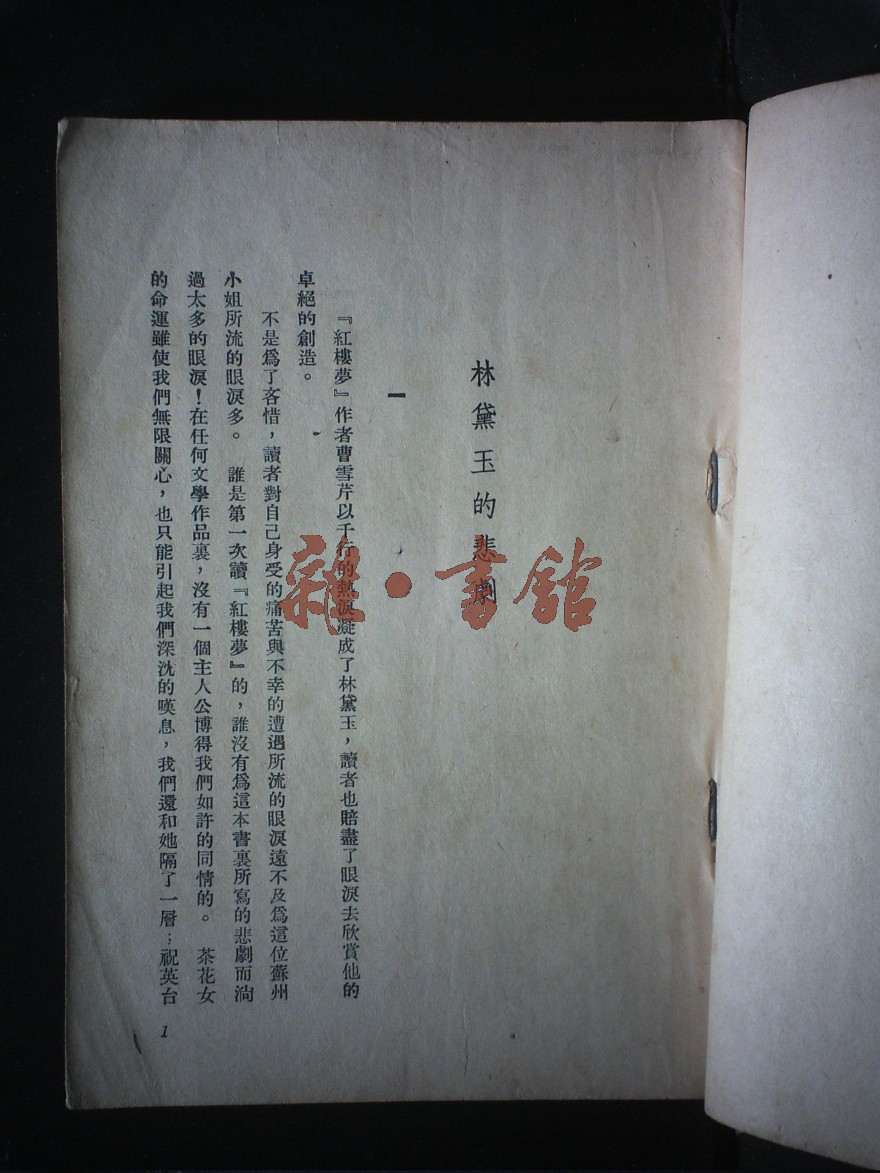 林黛玉的悲劇
一
『紅樓夢』作者曹雪芹以千行的熱淚凝成了林黛玉，讀者也賠盡了眼淚去欣賞他的
卓絕的創造。
不是爲了吝惜，讀者對自己身受的痛苦與不幸的遭遇所流的眼淚遠不及爲這位蘇州
小姐所流的眼淚多。　誰是第一次讀『紅樓夢』的，誰沒有爲這本書裏所寫的悲劇而淌
過太多的眼淚！在任何文學作品裏，沒有一個主人公博得我們如許的同情的。　茶花女
的命運雖使我們無限關心，也只能引起我們深沈的嘆息，我們還和她隔了一層；祝英台
1
雜·書館